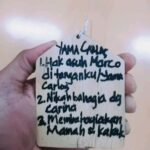 YAMA CARLOS
1. Hak asuh Marco
ditanganku/yama
Carlos
2. Nikah bahagia dg
Carina
3. Membahagiakan
Mamah & kakak